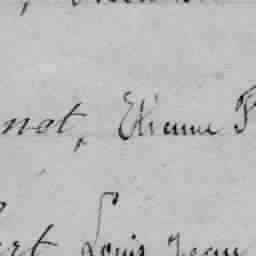 not, Etienne P
ert Louis Jean